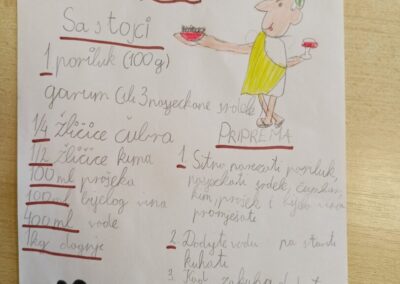 Sastojci
1 poriluk (100g)
garum (ili 3 nasjeckane srdele
1/4 žličice čubra
1/2 žličice kima
100 ml prošeka
100 ml bijelog vina
400 ml vode
1kg dagnje
PRIPREMA
1. Sitno narezati poriluk,
nasjeckati srdele, čubar,
kim, prošek i bijelo vino
promješati
2. Dodajte vodu i na
kuhati
3. Kad